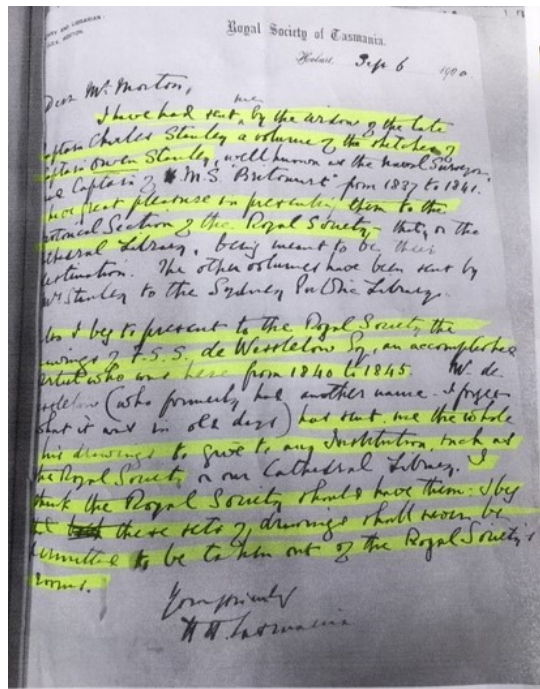 Royal Society of Tasmania.
Hobart. Sep 6 1900
Dear Mr. Morton,
me
I have had sent, by the widow of the late
aptain Charles Stanley a volume of the sketches of
aptain Owen Stanley, well known as the Naval Surveyor,
Captain of H.M.S "Britomart" from 1837 to 1841.
great pleasure in presenting them to the
storical Section of the Royal Society - that, or the
thedral Library, being meant to be their
estination. The other volumes have been sent by
Mrs Stanley to the Sydney Public Library.
I beg to present to the Royal Society the
wings of F.S.S. de Wesselow Esq, an accomplished
artist who was here from 1840 to 1845. Mr. de
sselow (who formerly had another name. I forget
what it was in old days) has sent me the whole
his drawings to give to any Institution, such as
the Royal Society or our Cathedral Library. I
think the Royal Society should have them. I beg
these sets of drawings shall never be
ermitted to be taken out of the Royal Society's
rooms.
Yours sincerely
H H. Tasmania